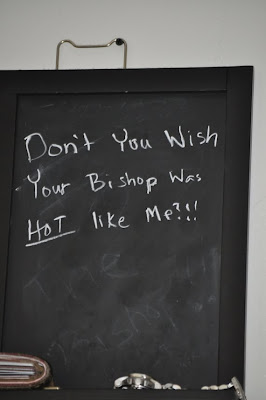 Don't You Wish
Your Bishop Was
HOT like Me?!!